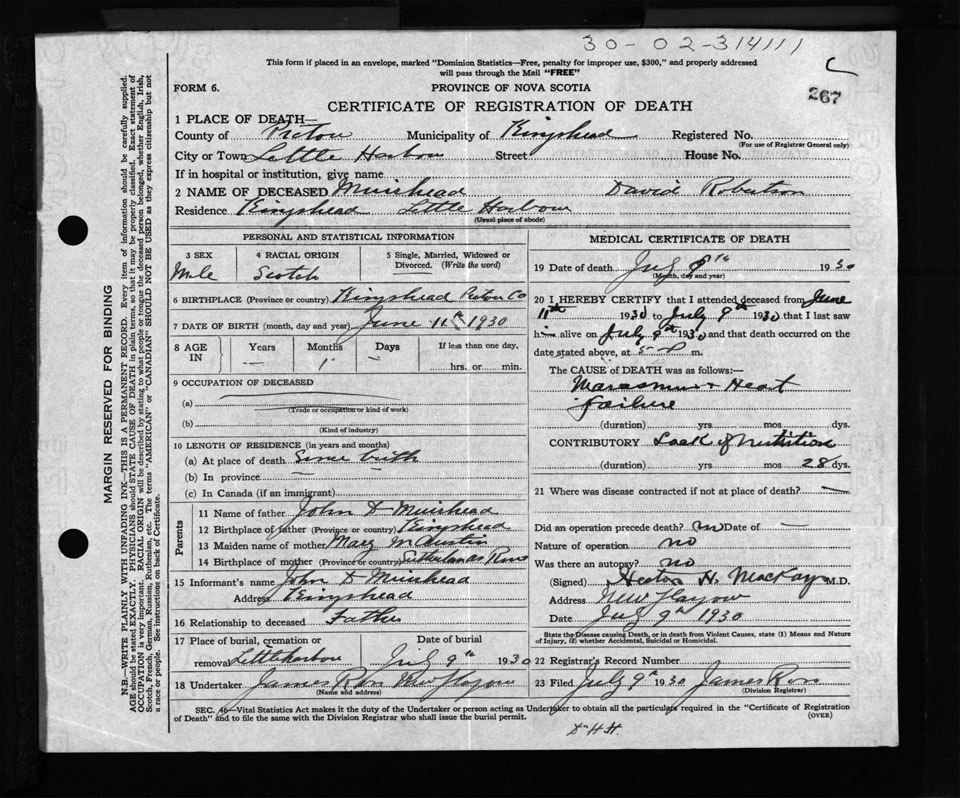 30-02-314111
This form if placed in an envelope, marked "Dominion Statistics—Free, penalty for improper use, $300," and properly addressed
will pass through the Mail "FREE"
C
267
FORM 6.
PROVINCE OF NOVA SCOTIA
CERTIFICATE OF REGISTRATION OF DEATH
1 PLACE OF DEATH—
County of Pictou Municipality of Kingshead Registered No.
(For use of Registrar General only)
City or Town Little Harbour Street House No.
If in hospital or institution, give name
2 NAME OF DECEASED Muirhead David Robertson
Residence Kingshead Little Harbour
(Usual place of abode)
PERSONAL AND STATISTICAL INFORMATION
3 SEX 4 RACIAL ORIGIN 5 Single, Married, Widowed or
Divorced. (Write the word)
Male Scotch
6 BIRTHPLACE (Province or country) Kingshead Pictou Co
7 DATE OF BIRTH (month, day and year) June 11th 1930
8 AGE IN Years Months Days If less than one day,
— 1 — hrs. or min.
9 OCCUPATION OF DECEASED
(a)
(Trade or occupation or kind of work)
(b)
(Kind of industry)
10 LENGTH OF RESIDENCE (in years and months)
(a) At place of death Since birth
(b) In province —
(c) In Canada (if an immigrant)
Parents
11 Name of father John D Muirhead
12 Birthplace of father (Province or country) Kingshead
13 Maiden name of mother Mary
14 Birthplace of mother (Province or country) Sutherlands River
15 Informant's name John D Muirhead
Address Kingshead
16 Relationship to deceased Father
17 Place of burial, cremation or Date of burial
removal Little Harbour July 9th 1930
18 Undertaker James New Glasgow
(Name and address)
MEDICAL CERTIFICATE OF DEATH
19 Date of death July 1930
(Month, day and year)
20 I HEREBY CERTIFY that I attended deceased from June
11th 1930 to July 9th 1930 that I last saw
him alive on July 9th 1930 and that death occurred on
date stated above, at 5 P m.
The CAUSE of DEATH was as follows:—
Marasmus + Heart
failure
(duration) yrs mos dys.
CONTRIBUTORY Lack of Nutrition
(duration) yrs mos 28 dys.
21 Where was disease contracted if not at place of death? —
Did an operation precede death? no Date of —
Nature of operation no
Was there an autopsy? no
(Signed) Hector H. MacKay M.D.
Address New Glasgow
Date July 9th 1930
State the Disease causing Death, or in death from Violent Causes, state (1) Means and Nature
of Injury, (2) whether Accidental, Suicidal or Homicidal.
22 Registrar's Record Number
23 Filed July 9th 1930 James Ross
(Division Registrar)
SEC. 46—Vital Statistics Act makes it the duty of the Undertaker or person acting as Undertaker to obtain all the particulars required in the "Certificate of Registration
of Death" and to file the same with the Division Registrar who shall issue the burial permit.
(OVER)
MARGIN RESERVED FOR BINDING
N.B.—WRITE PLAINLY WITH UNFADING INK—THIS IS A PERMANENT RECORD. Every item of information should be carefully supplied.
AGE should be stated EXACTLY. PHYSICIANS should STATE CAUSE OF DEATH in plain terms, so that it may be properly classified. Exact statement of
OCCUPATION is very important. RACIAL ORIGIN will be described by stating to what people or tongue the deceased person belonged, whether English, Irish,
Scotch, French, German, Russian, Ruthenian, etc. The terms "AMERICAN" or "CANADIAN" SHOULD NOT BE USED as they express citizenship but not
a race or people. See instructions on back of Certificate.